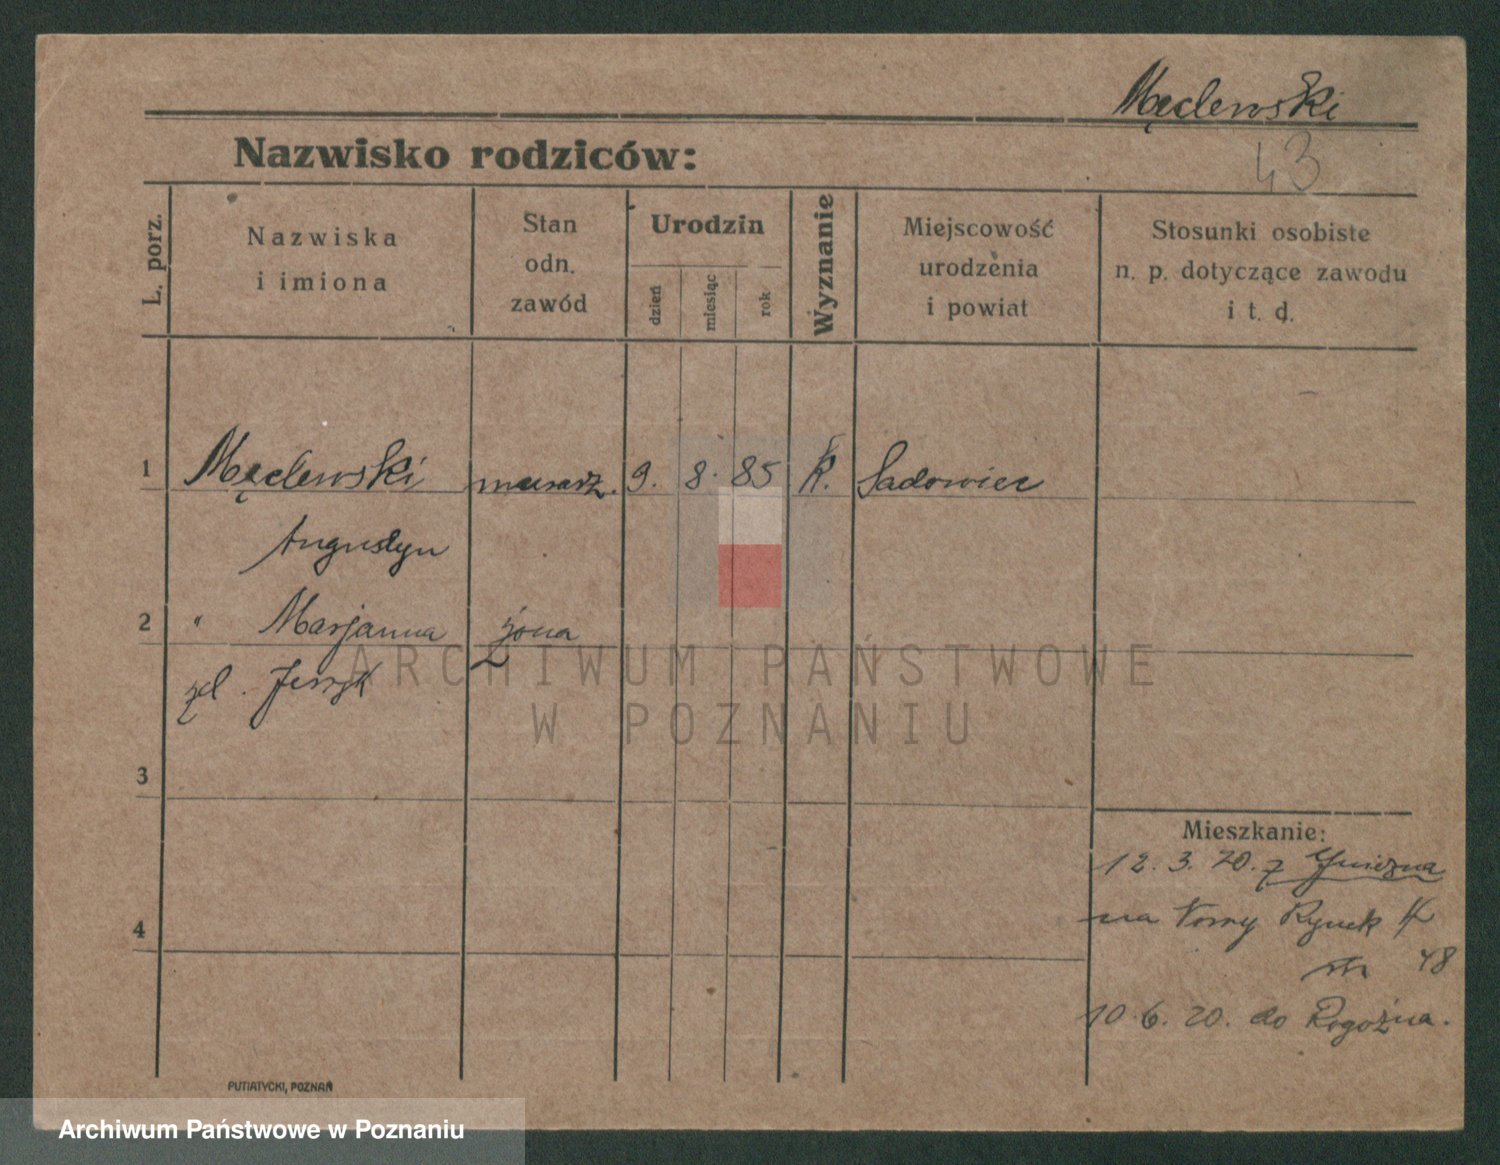 Męclewski
43
Nazwisko rodziców:
L. porz.
Nazwiska
i imiona
Stan
odn.
zawód
Urodzin
dzień
miesiąc
rok
Wyznanie
Miejscowość
urodzenia
i powiat
Stosunki osobiste
n. p. dotyczące zawodu
i t. d.
1 Męclewski murarz. 9. 8. 85 k. Sadowiec
Augustyn
2 " Marjanna żona
ARCHIWUM PAŃSTWOWE
W POZNANIU
3
Mieszkanie:
12. 3. 20. z Gniezna
na Nowy Rynek
4
48
10. 6. 20. do Rogoźna.
PUTIATYCKI, POZNAŃ
Archiwum Państwowe w Poznaniu